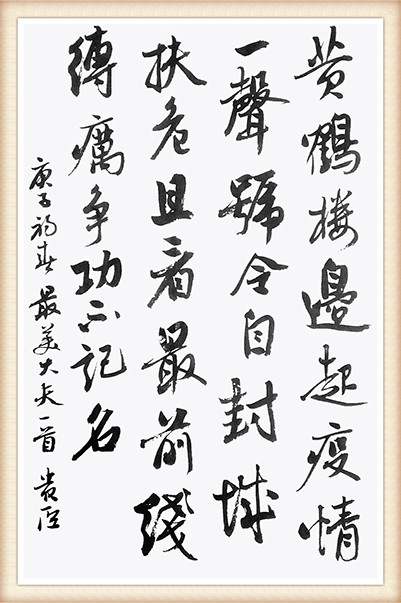 黄鶴楼邊起疫情
一聲號令自封城
扶危且看最前綫
縛癘争功不記名
庚子初春 最美大夫一首 贵臣